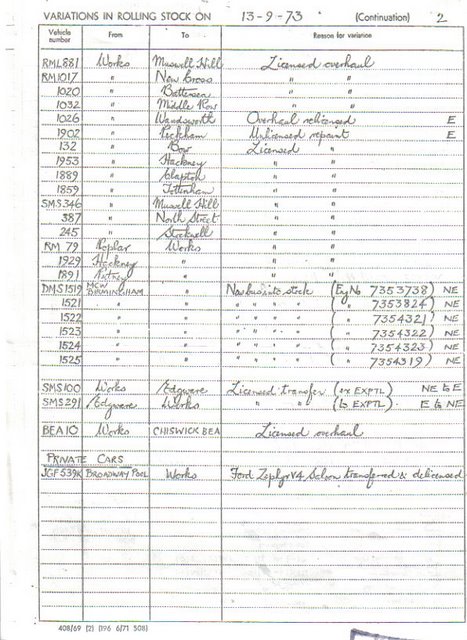 VARIATIONS IN ROLLING STOCK ON 13-9-73 (Continuation) 2
Vehicle number From To Reason for variation
RML881 Works Muswell Hill Licensed overhaul
RM1017 " New Cross " "
1020 " Battersea " "
1032 " Middle Row " "
1026 " Wandsworth Overhaul relicensed E
1902 " Peckham Unlicensed repaint E
132 " Bow Licensed "
1953 " Hackney " "
1889 " Clapton " "
1859 " Tottenham " "
SMS346 " Muswell Hill " "
387 " North Street " "
245 " Stockwell " "
RM 79 Poplar Works " "
1929 Hackney " " "
1891 Putney " " "
DMS1519 MCW BIRMINGHAM " New bus into stock (Eng No 7353738) NE
1521 " " " " " " ( " 7353824) NE
1522 " " " " " " ( " 7354321) NE
1523 " " " " " " ( " 7354322) NE
1524 " " " " " " ( " 7354323) NE
1525 " " " " " " ( " 7354319) NE
SMS100 Works Edgware Licensed transfer (ex EXPTL) NE to E
SMS291 Edgware Works " " (to EXPTL) E to NE
BEA10 Works CHISWICK BEA Licensed overhaul
PRIVATE CARS
JGF539K BROADWAY POOL Works Ford Zephyr V4 Saloon transferred & delicensed
408/69 (2) (196 6/71 508)